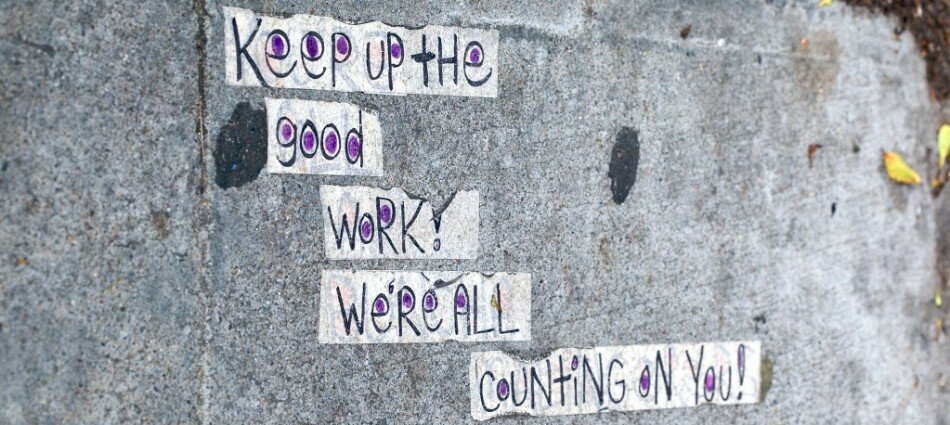 Keep up the
good
work!
We're all
counting on you!